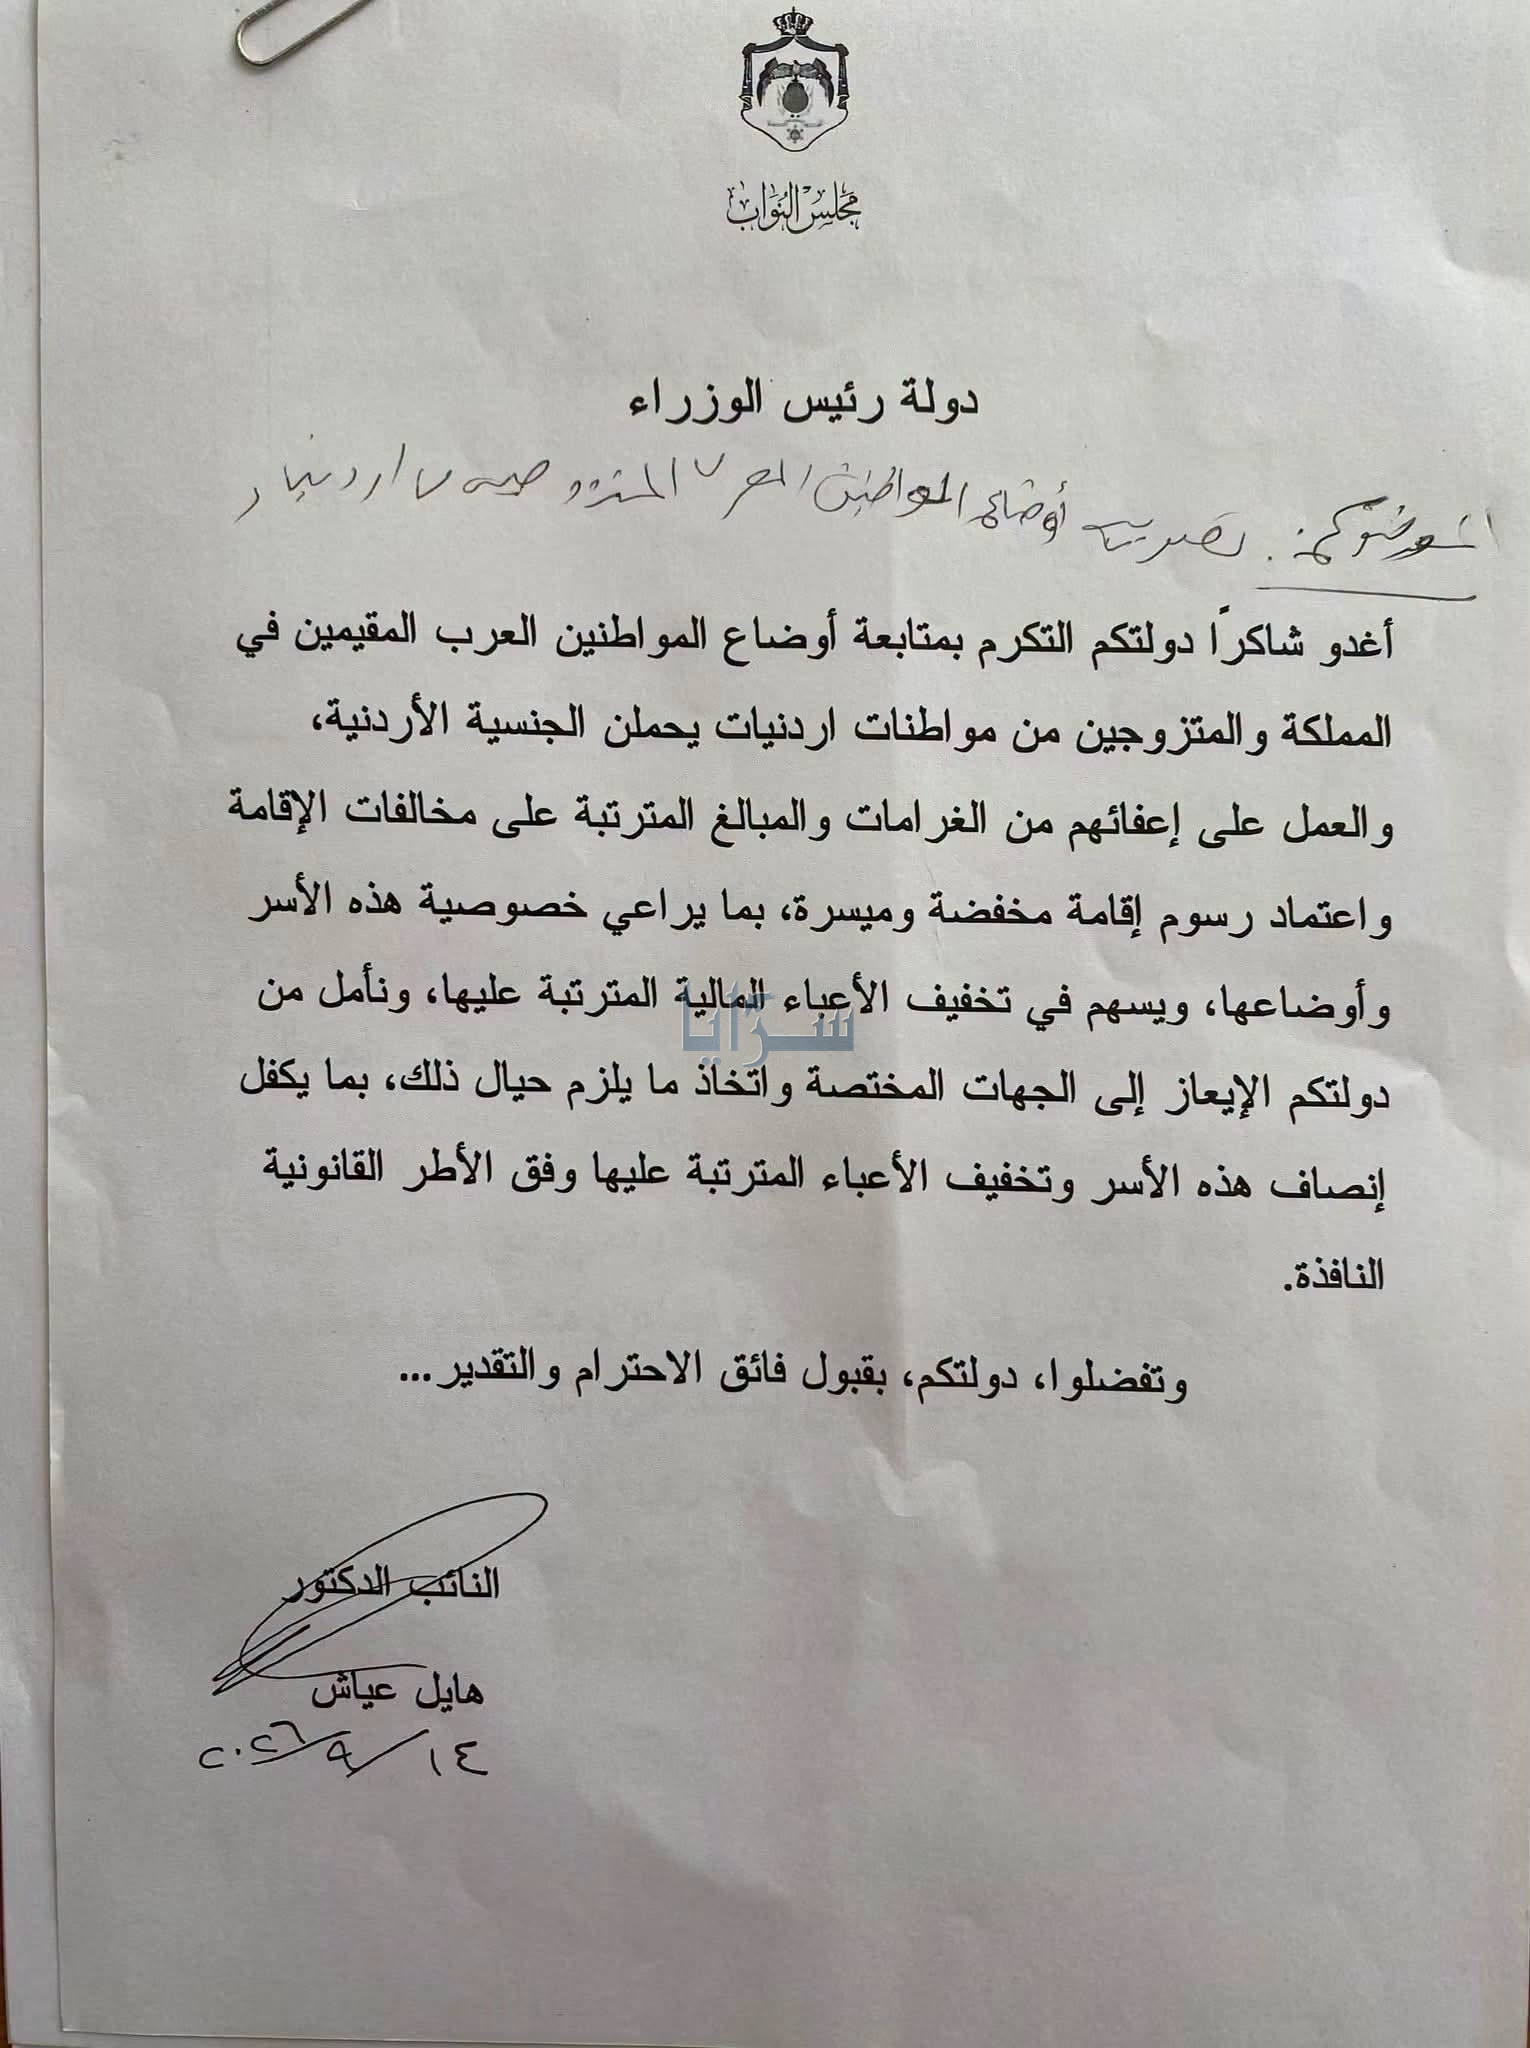 مجلس النواب
دولة رئيس الوزراء
الموضوع: تصويب أوضاع المواطنين العرب المتزوجين من اردنيات
أغدو شاكرًا دولتكم التكرم بمتابعة أوضاع المواطنين العرب المقيمين في
المملكة والمتزوجين من مواطنات اردنيات يحملن الجنسية الأردنية،
والعمل على إعفائهم من الغرامات والمبالغ المترتبة على مخالفات الإقامة
واعتماد رسوم إقامة مخفضة وميسرة، بما يراعي خصوصية هذه الأسر
وأوضاعها، ويسهم في تخفيف الأعباء المالية المترتبة عليها، ونأمل من
سرايا
دولتكم الإيعاز إلى الجهات المختصة واتخاذ ما يلزم حيال ذلك، بما يكفل
إنصاف هذه الأسر وتخفيف الأعباء المترتبة عليها وفق الأطر القانونية
النافذة.
وتفضلوا، دولتكم، بقبول فائق الاحترام والتقدير...
النائب الدكتور
هايل عياش
١٤/٩/٢٠٢٦